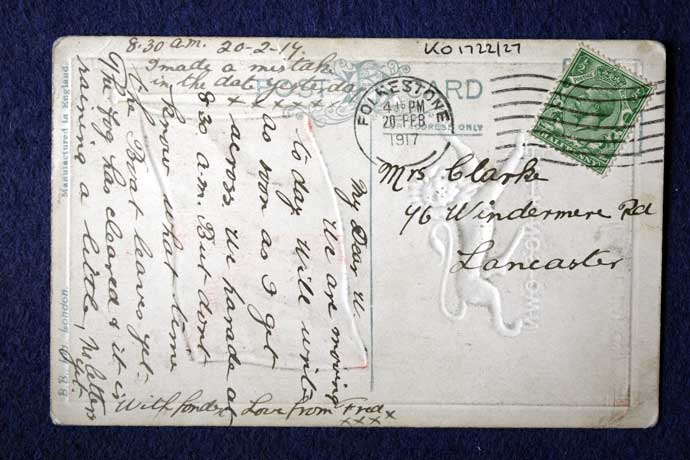 8.30 a.m. 20-2-17.
I made a mistake
in the date yesterday
x x x x x x
KO1722/27
CARD
ADDRESS ONLY
FOLKESTONE
PM
20 FEB
1917
HALFPENNY
Mrs Clarke
46 Windermere Rd
Lancaster
My Dear
We are moving
to day. Will write
as soon as I get
across. We parade at
8.30 a.m. But dont
know what time
the Boat leaves yet.
The fog has cleared & it is
raining a little, No letters
yet.
With fondest Love from Fred
xxxx
Manufactured in England.
London.